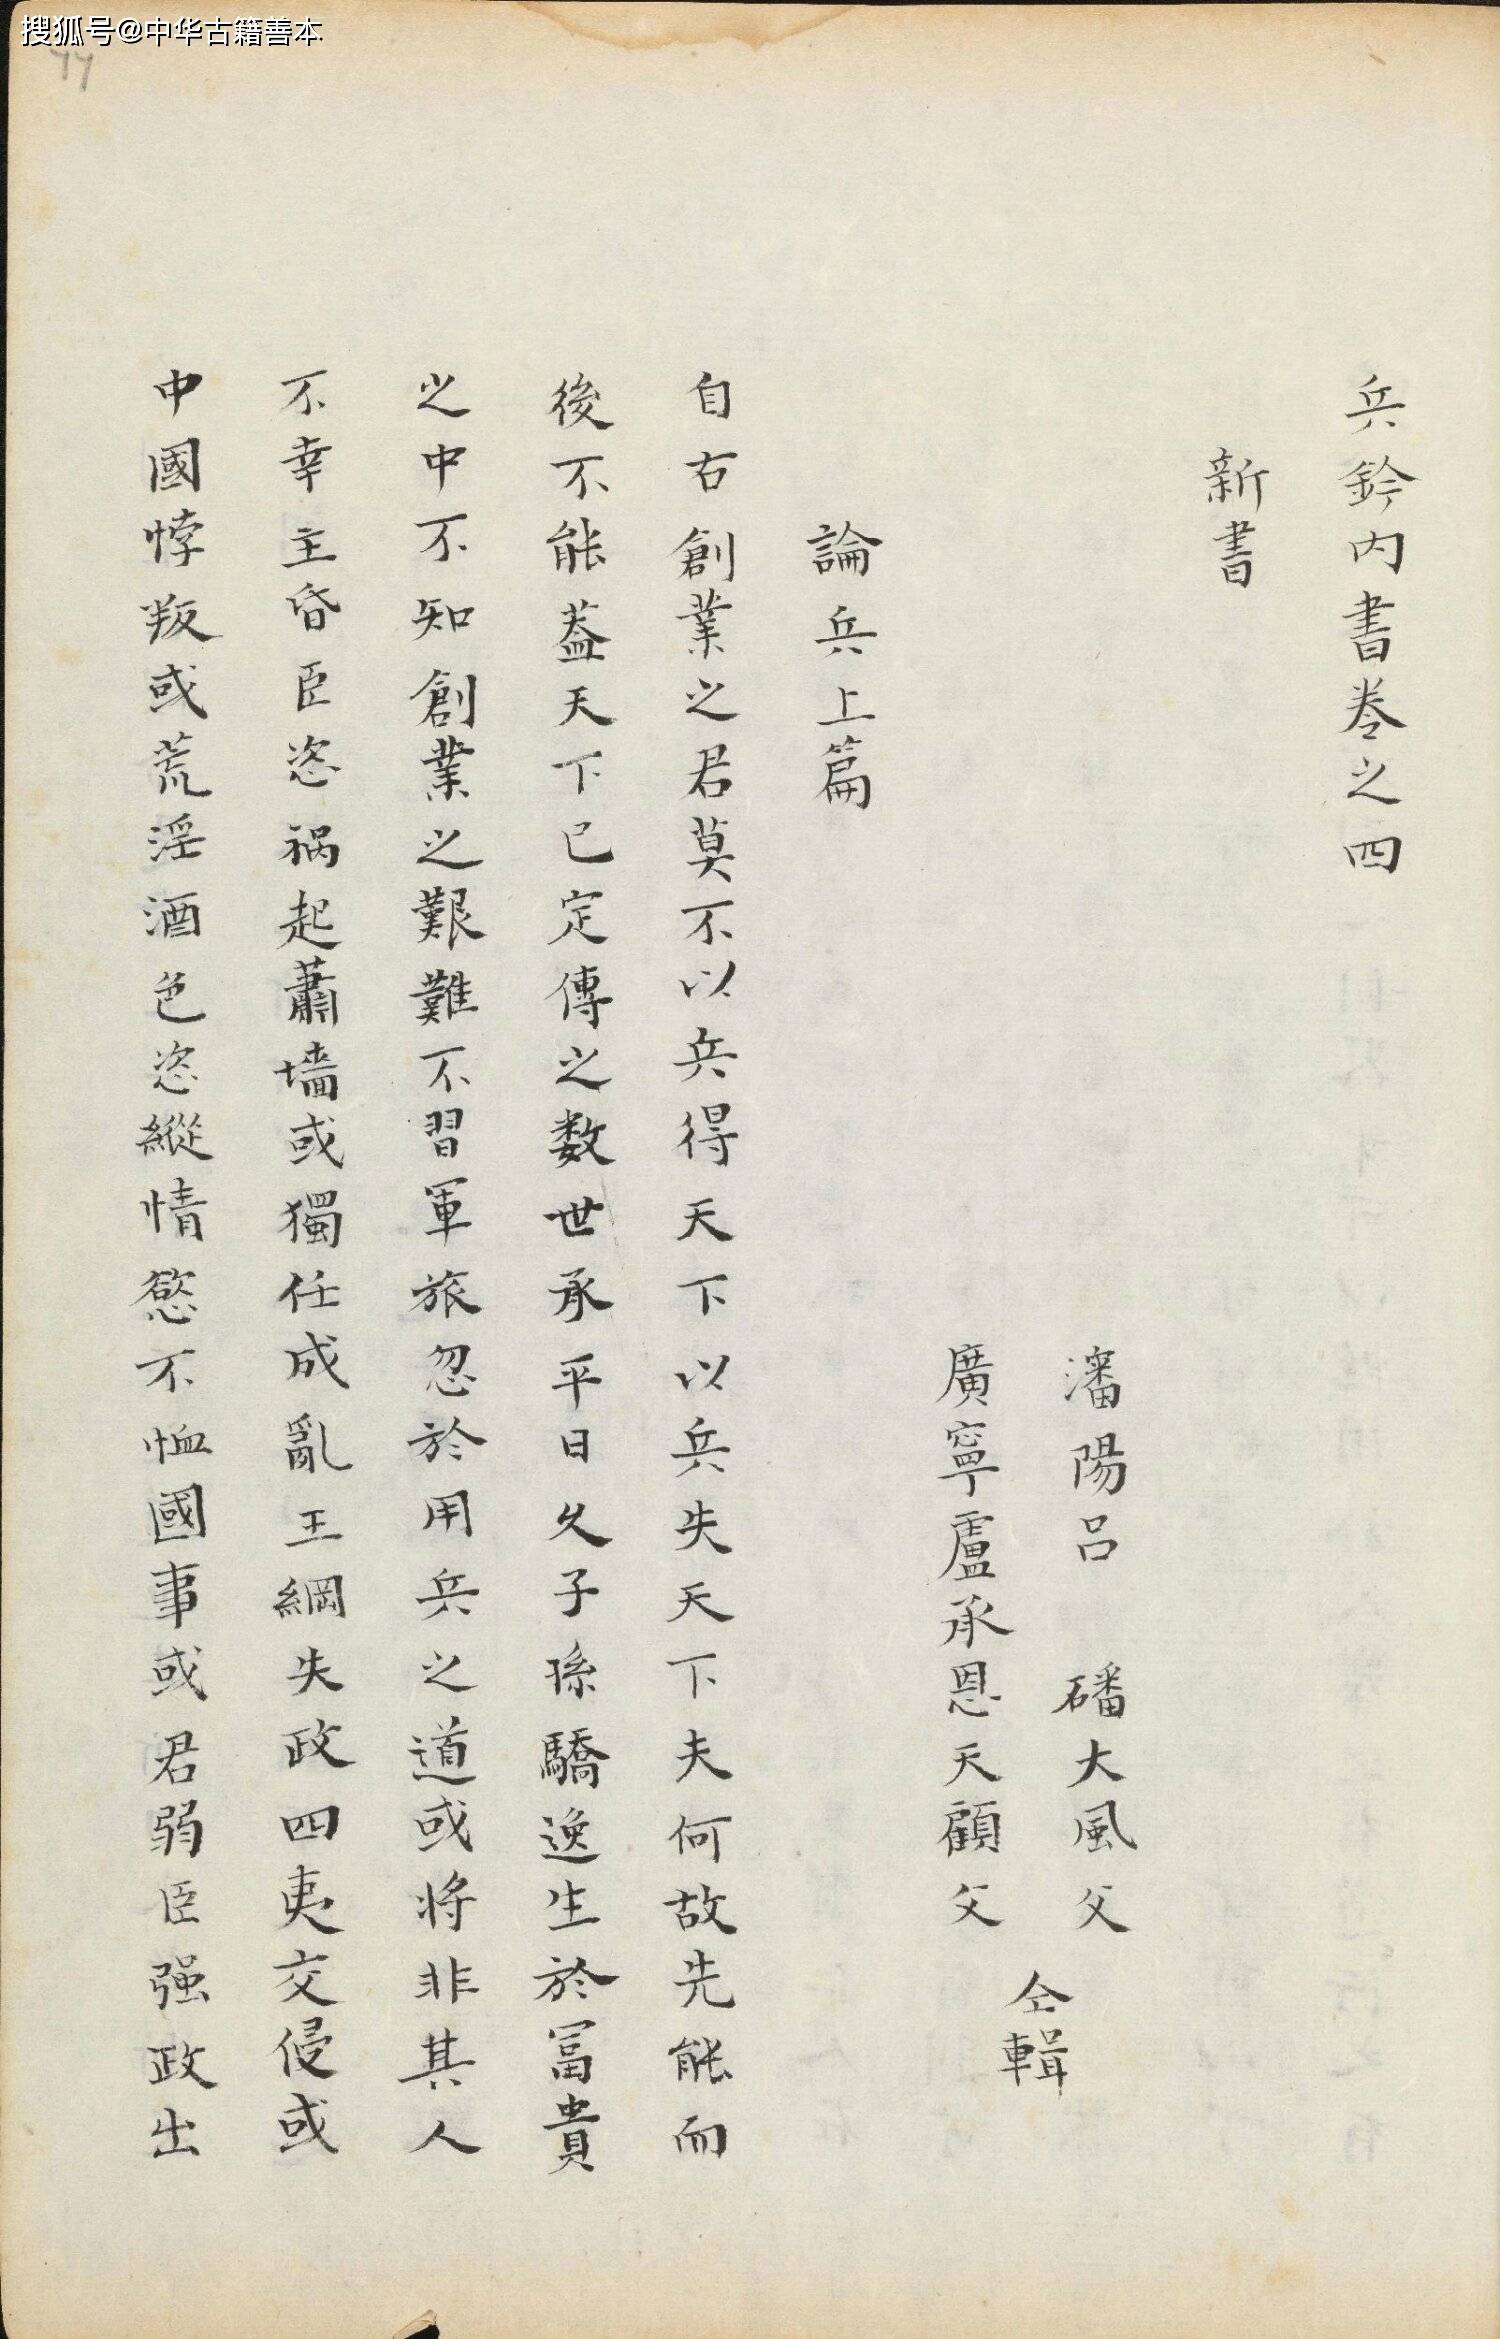 搜狐号@中华古籍善本
44
兵鈐内書卷之四
新書
瀋陽呂 磻大風父
廣寧盧承恩天顧父
仝輯
論兵上篇
自右創業之君莫不以兵得天下以兵失天下夫何故先能而
後不能葢天下已定傳之数世承平日久子孫驕逸生於冨貴
之中不知創業之艱難不習軍旅忽於用兵之道或将非其人
不幸主昏臣恣祸起蕭墙或獨任成亂王綱失政四夷交侵或
中國悖叛或荒淫酒色恣縱情慾不恤國事或君弱臣强政出